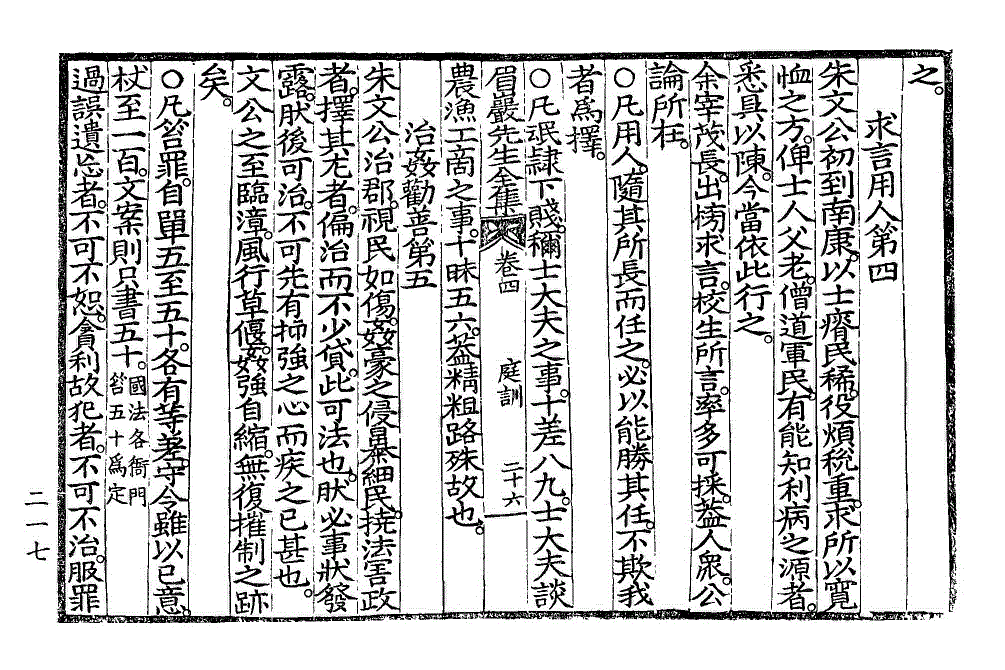 之。
求言用人第四
朱文公初到南康。以士瘠民稀。役煩稅重。求所以寬
恤之方。俾士人父老。僧道軍民。有能知利病之源者。
悉具以陳。今當依此行之。
余宰茂長。出榜求言。校生所言。率多可採。葢人衆。公
論所在。
○凡用人。隨其所長而任之。必以能勝其任。不欺我
者爲擇。
○凡氓隷下賤。稱士大夫之事。十差八九。士大夫談
眉巖先生全集 卷四 庭訓 二十六
農漁工商之事。十昧五六。葢精粗路殊故也。
治姦勸善第五
朱文公治郡。視民如傷。姦豪之侵暴細民。撓法害政
者。擇其尤者。偏治而不少貸。此可法也。肰必事狀發
露。肰後可治。不可先有抑強之心而疾之已甚也。
文公之至臨漳。風行草偃。姦強自縮。無復摧制之跡
矣。
○凡笞罪。自單五至五十。各有等差。守令雖以已意。
杖至一百。文案則只書五十。國法各衙門笞五十爲定
過誤遺忘者。不可不恕。貪利故犯者。不可不治。服罪
二一七